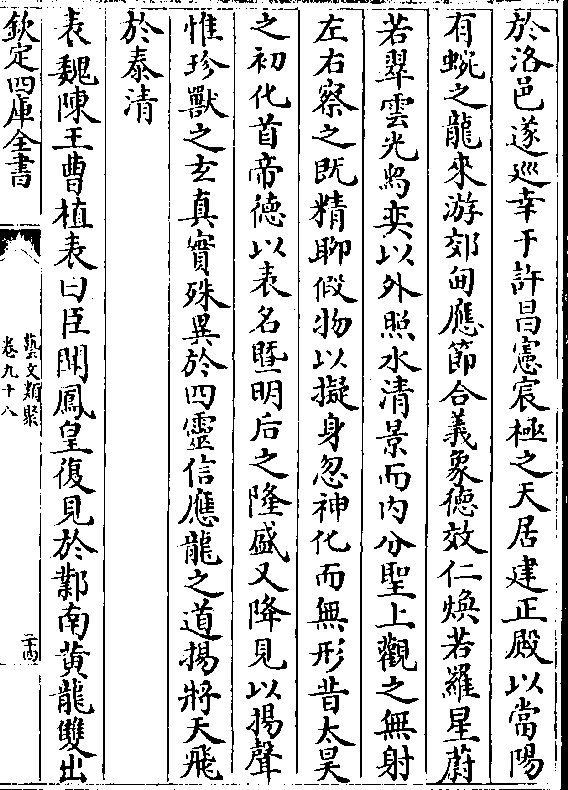 於洛邑遂巡幸于許昌憲宸極之天居建正殿以當陽
有蜿之龍來游郊甸應節合義象德效仁煥若羅星蔚
若翠雲光馰奕以外照水清景而内分聖上觀之無射
左右察之既精聊假物以擬身忽神化而無形昔太昊
之初化首帝德以表名曁明后之隆盛又降見以揚聲
惟珍獸之玄真實殊異於四靈信應龍之道揚將天飛
於泰清
表魏陳王曹植表曰臣聞鳳皇復見於鄴南黄龍雙出
欽定四庫全書
藝文類聚
卷九十八
二十四